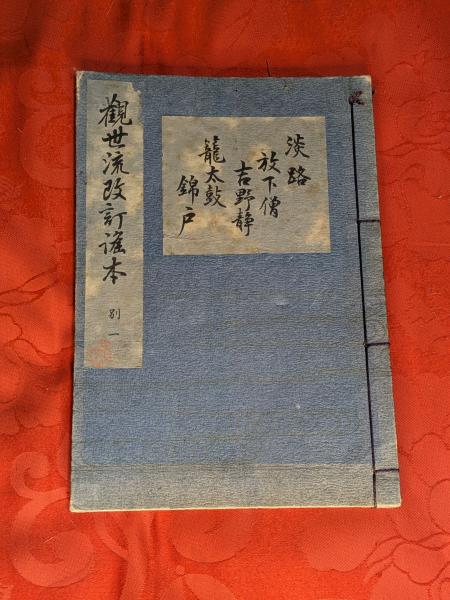 淡路
放下僧
吉野静
籠太鼓
錦戸
觀世流改訂謡本
別一